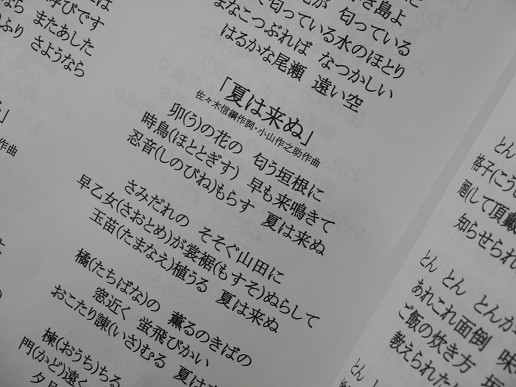 呼びです
なら またあした
ふり さようなら
作曲
き島よ
匂っている
く匂っている水のほとり
まなこつぶれば なつかしい
はるかな尾瀬 遠い空
「夏は来ぬ」
佐々木信綱作詞・小山作之助作曲
卯(う)の花の 匂う垣根に
時鳥(ほととぎす) 早も来鳴きて
忍音(しのびね)もらす 夏は来ぬ
さみだれの そそぐ山田に
早乙女(さおとめ)が裳裾(もすそ)ぬらして
玉苗(たまなえ)植うる 夏は来ぬ
橘(たちばな)の 薫るのきばの
窓近く 蛍飛びかい
おこたり諌(いさ)むる 夏は
楝(おうち)ちる
門(かど)遠く
夕月
とん
格子(こう
して頂戴
知らせられ
とん とん とんか
あれこれ面倒 味
ご飯の炊き方
教えられた
とん